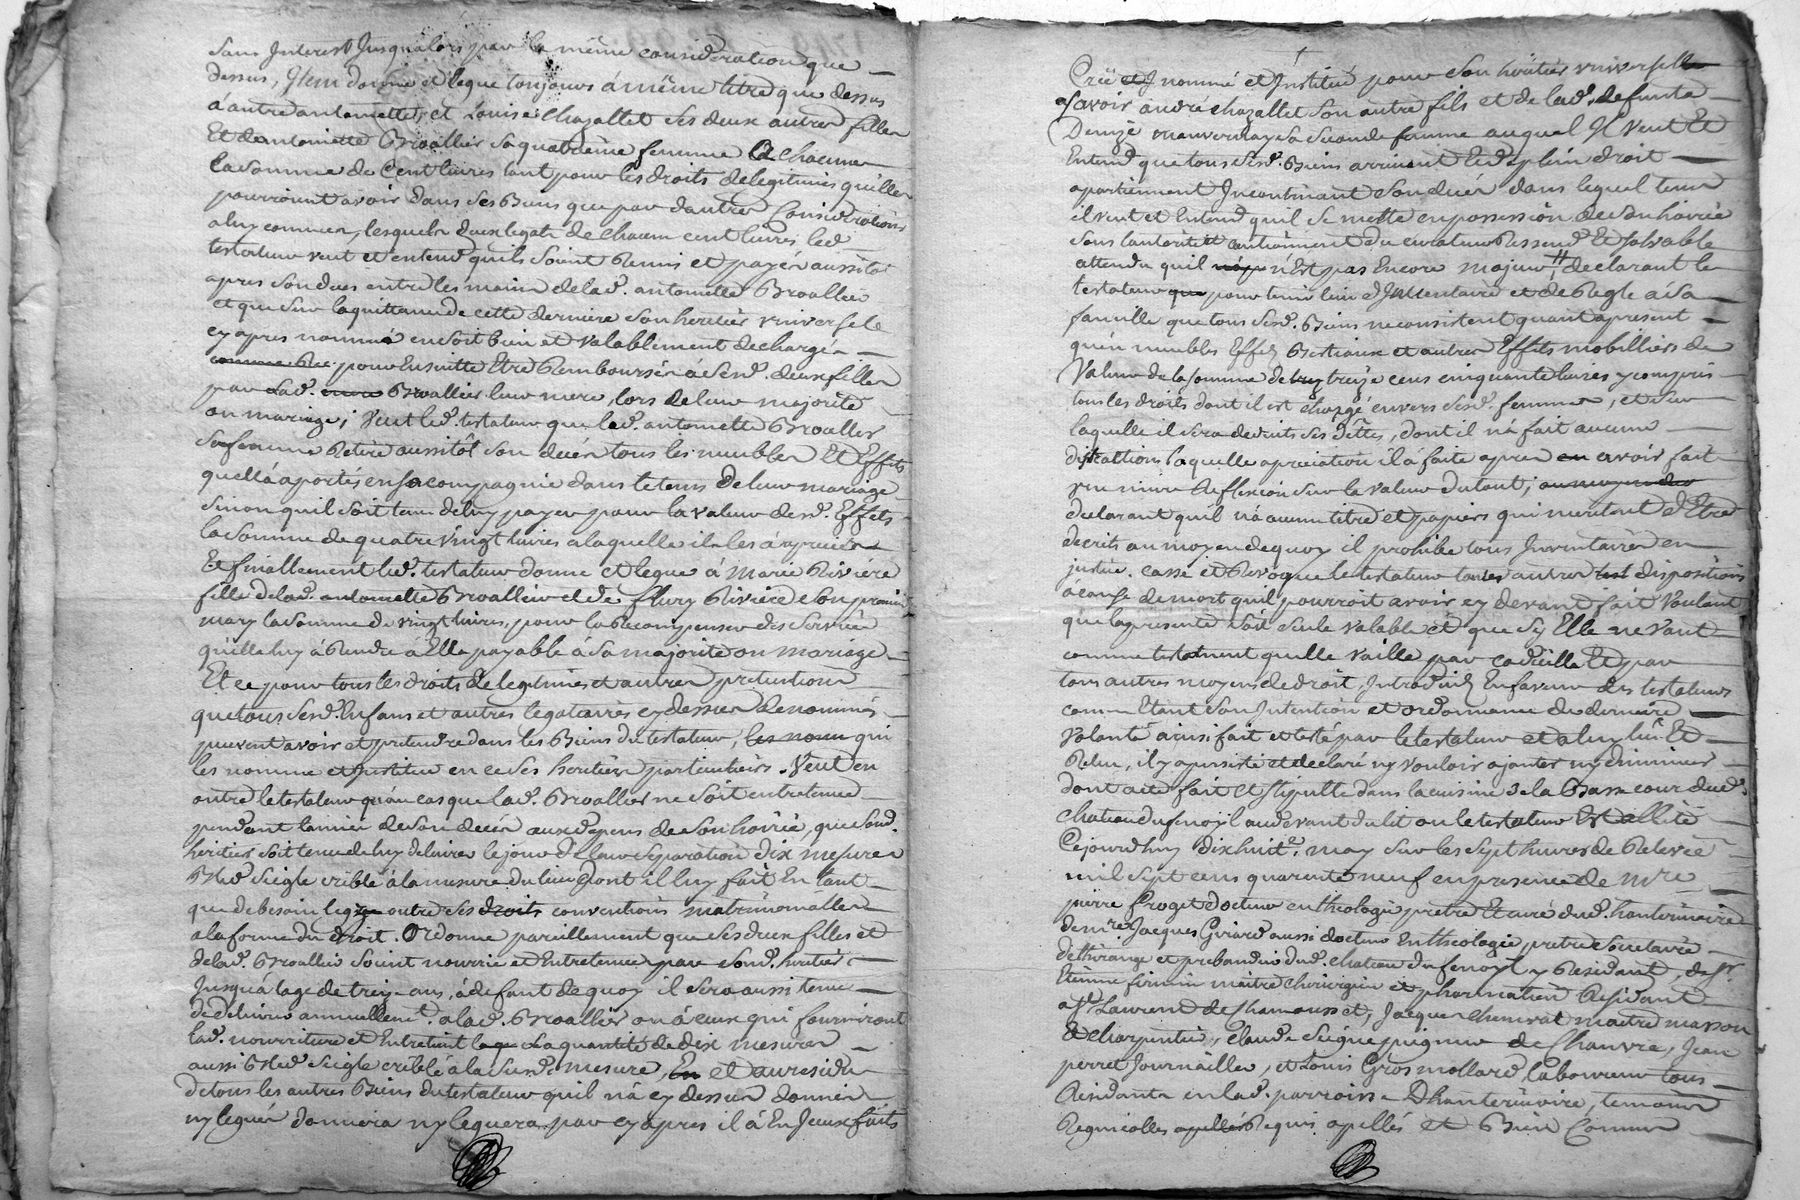 sans Interest Jusqualors par la même consideration que
dessus, Item donne et legue toujours à même titre que dessus
à autre antoinette, et Louise chazallet ses deux autres filles
Et de antoinette Broallier sa quatrième femme a chacune
la somme de Cent livres tant pour les droits de legitimes quelles
pourroient avoir dans ses Biens que par dautres Considerations
a luy connues, lesquels deux legats de chacun cent livres led.
testateur veut et entend quils soient Remis et payés aussitot
apres son deces entre les mains de lad. antoinette Broallier
et que sur la quittance de cette derniere son heritier universele
cy apres nommé en soit bien et valablement dechargé
pour Ensuitte Etre Remboursés à sesd. deux filles
par Lad. Broallier leur mere, lors de leur majorité
ou mariage; Veut led. testateur que lad. antoinette Broallier
sa femme Retire aussitôt son decès tous les meubles Et Effets
quellà aportés en sa compagnie dans le tems de leur mariage
sinon quil soit tenu de luy payer pour la valeur desd. Effets
la somme de quatre vingt livres a laquelle il les à apreciés
Et finallement led. testateur donne et legue à Marie Rivière
fille de lad. antoinette Broallier et de fleury Rivière son premier
mary la somme de vingt livres, pour la Recompenser des services
quelle luy à Rendu a Elle payable à sa majorité ou mariage
Et ce pour tous les droits de legitimes et autres pretentions
que tous sesd. Enfans et autres legataires cy dessus denommés
peuvent avoir et pretendre dans les Biens du testateur, qui
les nomme et Institue en ce ses heritiers particuliers. Veut en
outre le testateur qu'au cas que lad. Broallier ne soit entretenue
pendant lannée de son decès aux depens de son hoirie, que sond.
heritier soit tenu de luy delivrer le jour de leur separation dix mesures
Bled seigle criblé à la mesure du lieu dont il luy fait En tant
que de besoin legs outre ses droits conventions matrimonialles
a la forme du droit. Ordonne pareillement que ses deux filles et
de lad. Broallier soient nourries et Entretenues par sond. heritier
Jusquà lage de treize ans, à defaut de quoy il sera aussi tenu
de delivrer annuellemt. a lad. Broallier ou à ceux qui fourniront
lad. nourriture et Entretient la quantité de dix mesures
aussi Bled seigle criblé à la susd. mesure, En et au residu
de tous les autres Biens du testateur quil n'a cy dessus donnés
ny legués donnera ny leguera par cy apres il à En Jceux faits
Créé et Jnommé et Jnstitué pour son heritier universelle
asavoir andré chazallet son autre fils et de lad. defunte
Denize mauvernay sa seconde femme auquel Il veut Et
Entend que tous sesd. Biens arrivent Et de plein droit
apartiennent Incontinant son decès dans lequel tems
il veut et Entend quil se mette en possession de son hoirie
sous lautorité et consentement du curateur Resseant Et solvable
attendu quil n'Est pas Encore majeur, declarant le
testateur pour tenir lieu d'Inventaire et de Regle à sa
famille que tous sesd. Biens ne consistent quant apresent
qu'en meubles Effets Bestiaux et autres Effets mobilliers de
Valeur de la somme de treize cens cinquante livres y compris
tous les droits dont il est chargé envers sesd. femmes, et sur
laquelle il sera dedeuits ses dêttes, dont il n'à fait aucune
distractions laquelle apreciation il à faite apres avoir fait
une mûre Reflexion sur la valeur du tout,
declarant quil n'à aucun titre et papiers qui meritent d'Etre
decrits au moyen dequoy il prohibe tous Inventaires en
justice. casse et Revoque le testateur toutes autres dispositions
à cause de mort quil pourroit avoir cy devant fait Voulant
que la presente soit seule valable et que sy Elle ne Vaut
comme testament quelle vaille par codicille Et par
tous autres moyens de droit, Introduits En faveur des testateurs
comme Etant son Intention et ordonnance de derniere
Volonté ainsi fait et testé par le testateur et a luy lû Et
Relu, il y a persisté et declaré ny vouloir ajouter ny diminuer
dont acte fait Et stipullé dans la cuisine de la Basse cour dud.
chateau du fenoÿl au devant du lit ou le testateur Est allité
Cejourdhuy dixhuite. may sur les sept heures de Relevée
mil sept cens quarente neuf en presence de mre
pierre froget docteur en theologie pretre Et curé dud. hauterivoire
de mre Jacques Girard aussi docteur En theologie pretre societaire
de thirange et prebandier dud. chateau du fenoÿl y Residant, de Sr.
Etienne firmin maître chirurgien et pharmatien Residant
a St. Laurent de Chamousset, Jacques chenevat maitre masson
Et charpentier, Claude seigne peigneur de chanvre, Jean
perret Journailler, et Louis Gros mollard laboureur tous
Residants en lad. parroisse Dhauterivoire, temoins
Regnicolles Requis apellés Et Bien Connus